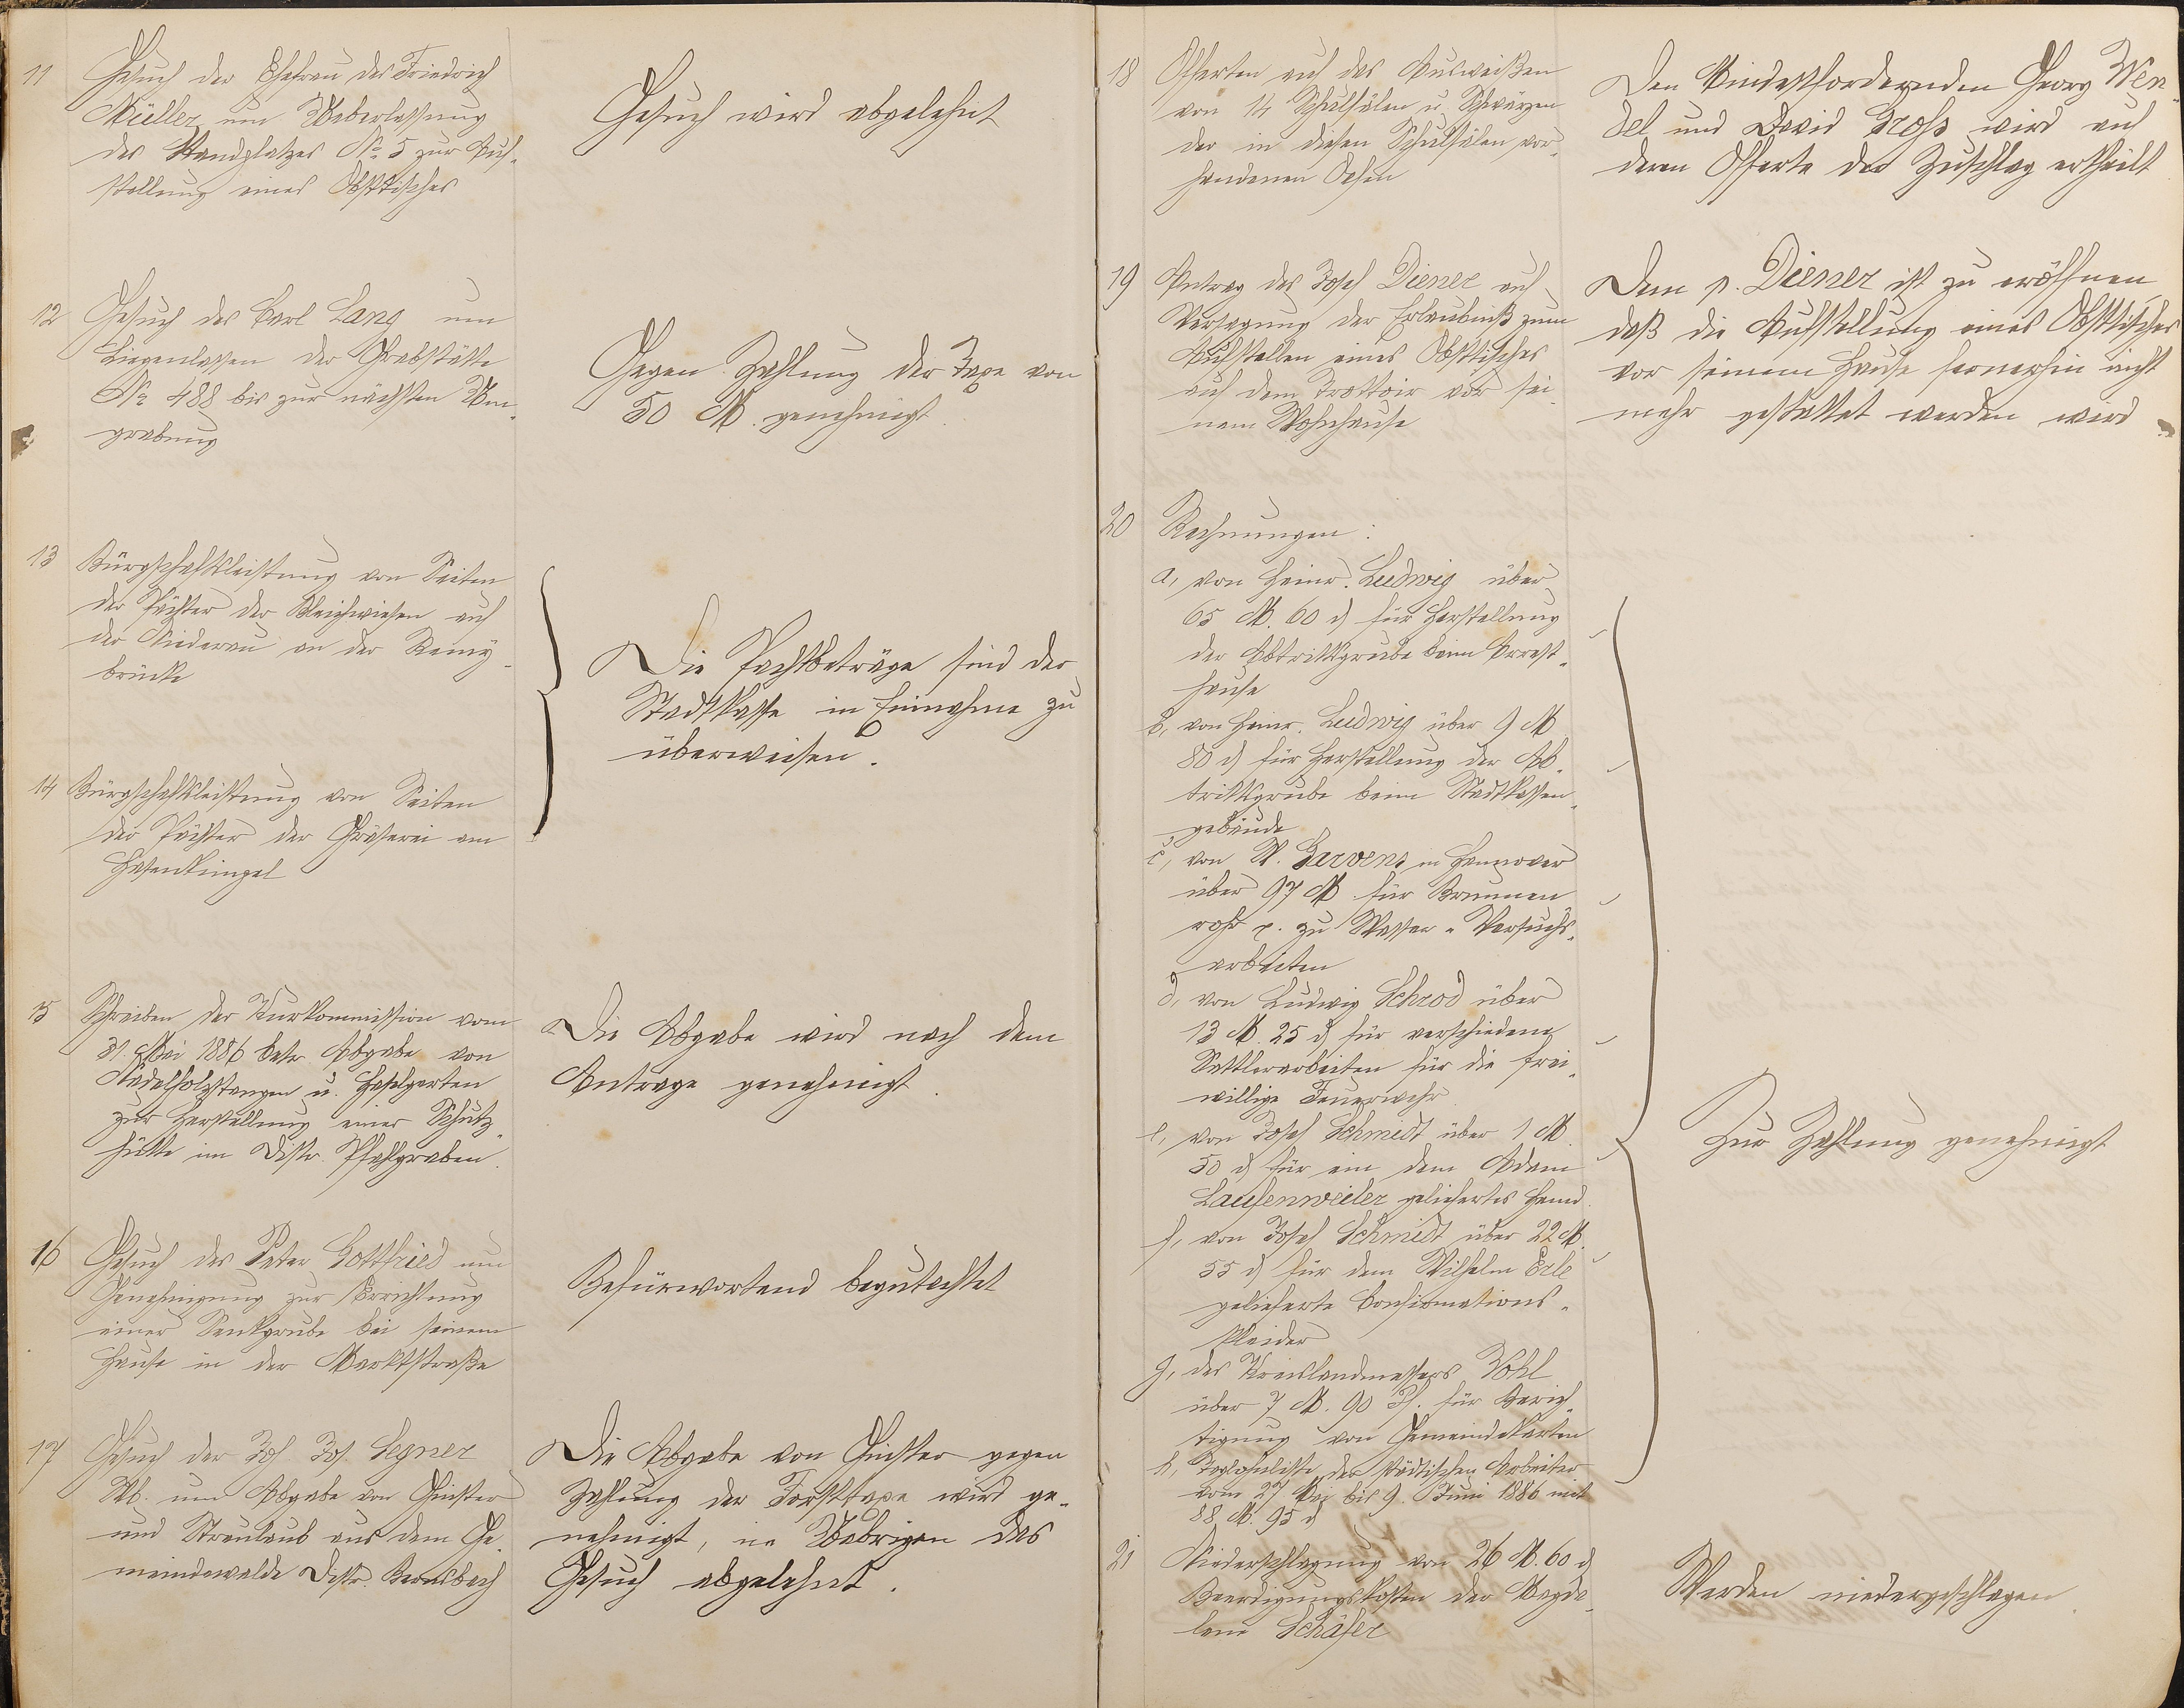 11 Gesuch der Ehefrau des Friedrich
Müller um Ueberlassung
des Standplatzes No 5 zur Auf-
stellung eines Obsttisches
Gesuch wird abgelehnt
12 Gesuch des Carl Lang um
Liegenlassen der Grabstätte
No 488 bis zur nächsten Um-
grabung
Gegen Zahlung der Taxe von
50 M. genehmigt.
13 Bürgschaftsleistung von Seiten
der Pächter der Bleichwiesen auf
der Niederau an der Remy-
brücke
14 Bürgschaftsleistung von Seiten
der Pächter der Gräserei am
Hasenküngel
Die Pachtbeträge sind der
Stadtkasse in Einnahme zu
überweisen.
15 Schreiben der Kurkommission vom
31. Mai 1886 betr. Abgabe von
Nadelholzstangen u. Haselgerten
zur Herstellung einer Schutz-
hütte im Distr. Pfahlgraben.
Die Abgabe wird nach dem
Antrage genehmigt.
16 Gesuch des Peter Gottfried um
Genehmigung zur Errichtung
einer Senkgrube bei seinem
Hause in der Marktstraße
Befürwortend begutachtet
17 Gesuch der Joh. Jos. Segner
Wb. um Abgabe von Ginster
und Streulaub aus dem Ge-
meindewalde Distr. Braubach
Die Abgabe von Ginster gegen
Zahlung der Forsttaxe wird ge-
nehmigt, im Uebrigen das
Gesuch abgelehnt.
18 Offerten auf das Ausweißen
von 14 Schulsälen u. Schwärzen
der in diesen Schulsälen vor-
handenen Oefen
Den Mindestfordernden Georg Wen-
del und David Gross wird auf
deren Offerte der Zuschlag ertheilt
19 Antrag des Josef Diener auf
Versagung der Erlaubniß zum
Aufstellen eines Obsttisches
auf dem Trottoir vor sei-
nem Wohnhause
Dem p. Diener ist zu eröffnen
daß die Aufstellung eines Obsttisches
vor seinem Hause fernerhin nicht
mehr gestattet werden wird
20 Rechnungen:
a, von Heinr. Ludwig über
65 M. 60 d für Herstellung
der Abtrittgrube beim Arrest-
hause
b, von Heinr. Ludwig über 9 M
80 d für Herstellung der Ab-
trittsgrube beim Stadtkassen-
gebäude
c, von W. Garvens in Hannover
über 97 M für Brunnen
rohr p. zu Wasser-Versuchs-
arbeiten
d, von Ludwig Schrod über
13 M. 25 d für verschiedene
Sattlerarbeiten für die frei-
willige Feuerwehr
e, von Josef Schmidt über 1 M.
50 d für ein dem Adam
Laufenweiler geliefertes Hemd.
f, von Josef Schmidt über 22 M.
55 d für dem Wilhelm Erle
gelieferte Confirmations-
kleider
g, des Kreislandmessers Vohl
über 7 M. 90 Pf. für Berich-
tigung von Gemeindekarten
h, Taglohnliste der städtischen Arbeiter
vom 27 Mai bis 9. Juni 1886 mit
88 M. 95 d
Zur Zahlung genehmigt
21 Niederschlagung von 26 M. 60 d
Beerdigungskosten der Magda-
lena Schäfer
Werden niedergeschlagen.